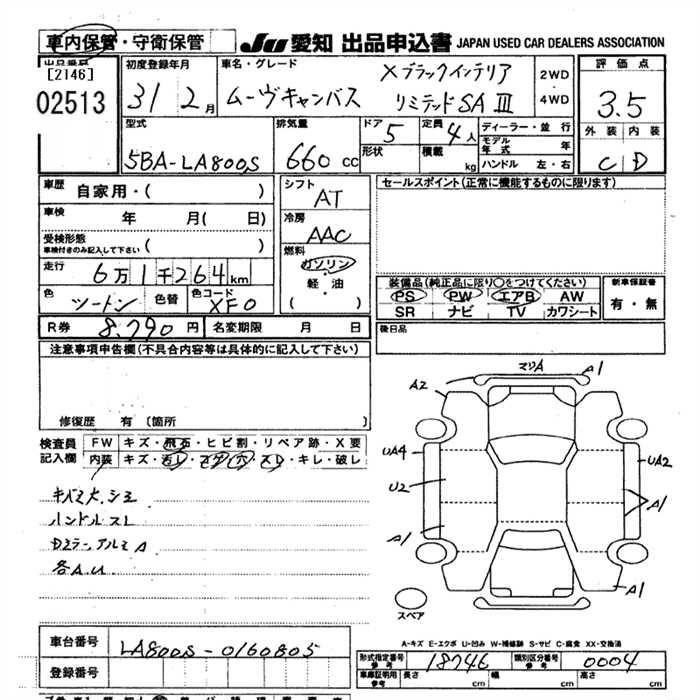 車内保管・守衛保管 JU 愛知 出品申込書 JAPAN USED CAR DEALERS ASSOCIATION
出品番号 [2146] 02513
初度登録年月 31 2月
車名・グレード ムーヴキャンバス ×ブラックインテリア リミテッドSAⅢ
2WD・4WD
評価点 3.5
外装 内装 C D
型式 5BA-LA800S
排気量 660 CC
ドア 5 形状
定員 4人 積載 kg
ディーラー・並行
モデル年式 年
ハンドル 左・右
車歴 自家用・( )
車検 年 月( 日)
受検形態 車検付きのみ記入して下さい ( )
走行 6万1千264km
色 ツートン 色替 色コード XF0
R券 8,790円 名変期限 月 日
シフト AT
冷房 AAC
燃料 ガソリン・軽・油 ( )
セールスポイント(正常に機能するものに限ります)
装備品(純正品に限り○をつけてください)
PS PW エアB AW
SR ナビ TV カワシート
新車保証書 有・無
後日品
注意事項申告欄(不具合内容等は具体的に記入して下さい)
修復歴 有 (箇所
検査員記入欄 FW キズ・飛石・ヒビ割・リペア跡・X要
内装 キズ・汚レ・コゲ穴・スレ・キレ・破レ
ハンドルスレ
Dミラー、アルミA
各A.U
マリA A1
A2
UA4
U2
A1
UA2
A1
A1
スペア
A-キズ E-エクボ U-凹み W-補修跡 S-サビ C-腐食 XX-交換済
車台番号 LA800S-0160805
登録番号
形式指定番号 参考 18746 類別区分番号 参考 0004
車庫証明用 参考 cm 長さ cm 幅 cm 高さ cm